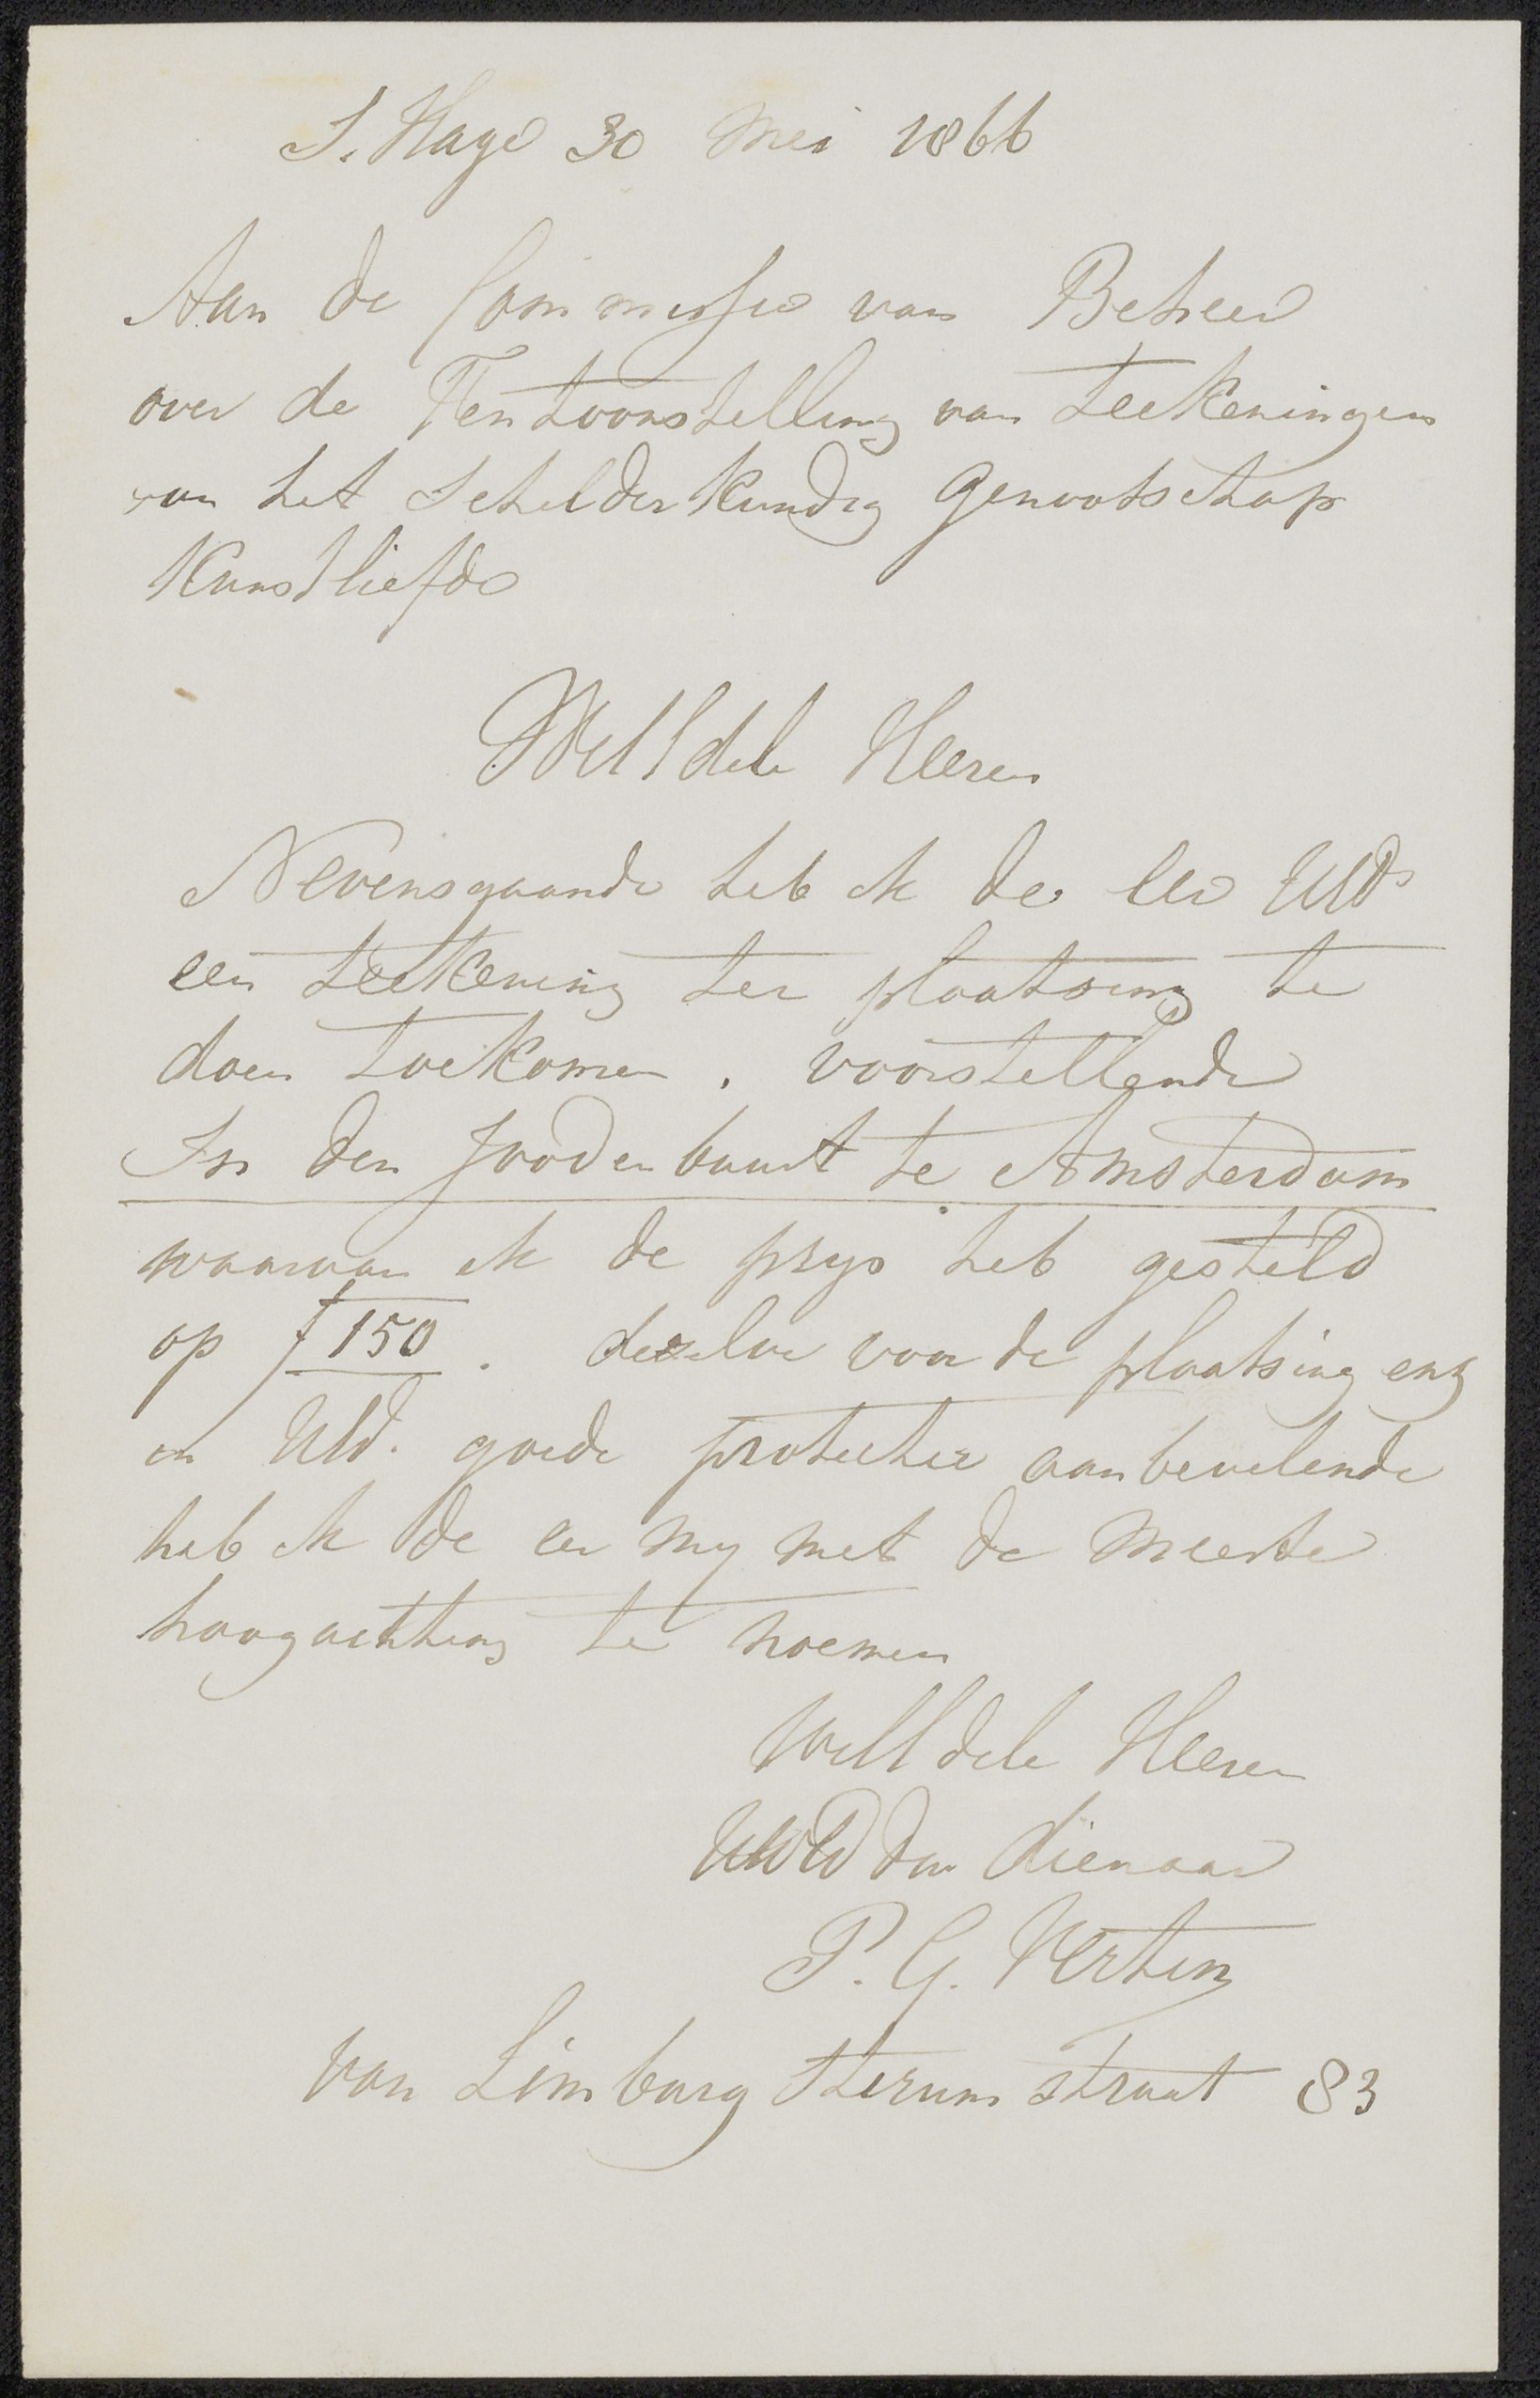 S. Hage 30 Mei 1866
Aan de Commissie van Beheer
over de Tentoonstelling van teekeningen
van het Schilderkundig Genootschap
Kunstliefde
WelEdele Heeren
Nevensgaande heb ik de eer UEds
een teekening ter plaatsing te
doen toekomen, voorstellende
In den Joodenbuurt te Amsterdam
waarvan ik de prys heb gesteld
op f 150. dezelve voor de plaatsing enz
in UEd. goede protectie aanbevelende
heb ik de eer my met de meeste
hoogachting te noemen
WelEdele Heeren
UWEd Dw dienaar
P. G. Vertin
van Limburg Stirum straat 83